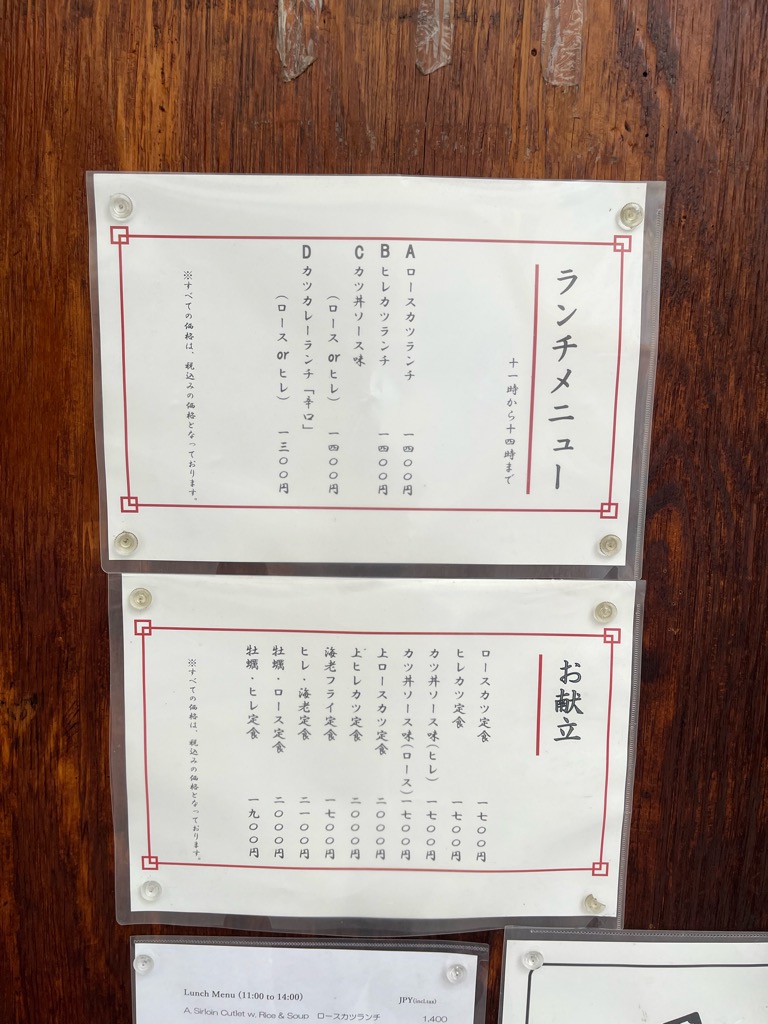 ランチメニュー
十一時から十四時まで
A ロースカツランチ 一四〇〇円
B ヒレカツランチ 一四〇〇円
C カツ丼ソース味
（ロース or ヒレ） 一四〇〇円
D カツカレーランチ「辛口」
（ロース or ヒレ） 一三〇〇円
※すべての価格は、税込みの価格となっております。
お献立
ロースカツ定食 一七〇〇円
ヒレカツ定食 一七〇〇円
カツ丼ソース味（ヒレ） 一七〇〇円
カツ丼ソース味（ロース） 一七〇〇円
上ロースカツ定食 二〇〇〇円
上ヒレカツ定食 二〇〇〇円
海老フライ定食 一七〇〇円
ヒレ・海老定食 二一〇〇円
牡蠣・ロース定食 二〇〇〇円
牡蠣・ヒレ定食 一九〇〇円
※すべての価格は、税込みの価格となっております。
Lunch Menu (11:00 to 14:00) JPY(incl.tax)
A. Sirloin Cutlet w. Rice & Soup ロースカツランチ 1,400